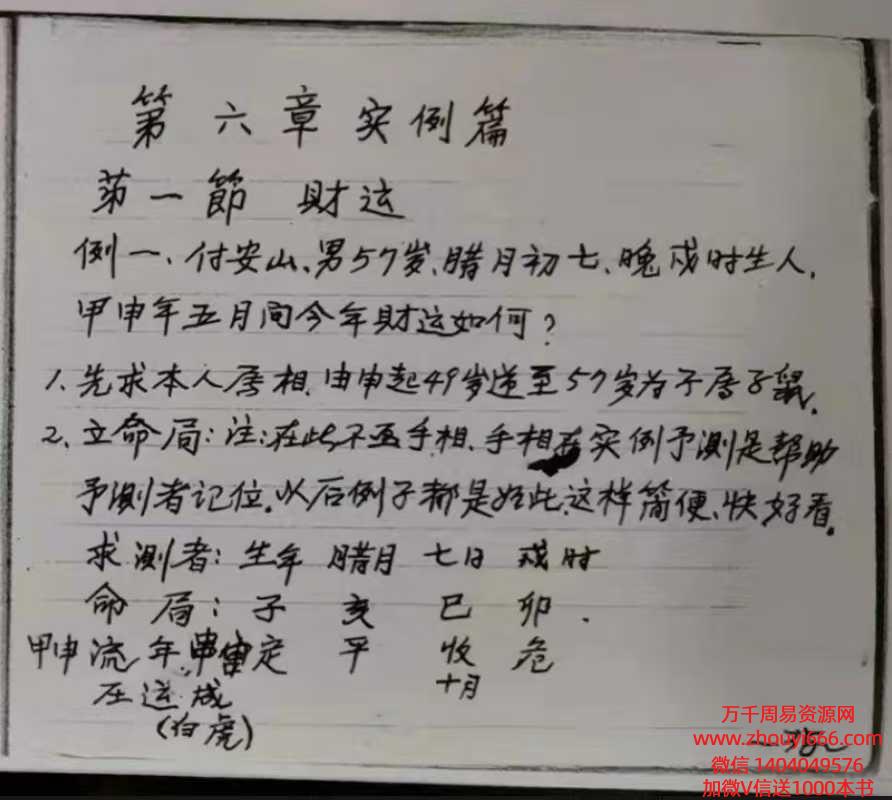 第六章实例篇
第一節 財运
例一、付安山、男57岁、腊月初七、晚戌时生人,
甲申年五月间今年財运如何?
1、先求本人属相,由申起49岁逆至57岁为子属子鼠,
2、立命局:注:在此不画手相、手相在实例予测是帮助
予测者记位。以后例子都是如此,这样简便、快好看。
求测者:生年 腊月 七日 戌时
命局:子 亥 巳 卯.
甲申流年, 定 平 收 危
压运成 十月
(白虎)
万千周易资源网
www.zhouyi666.com
微信 1404049576
加微V信送1000本书